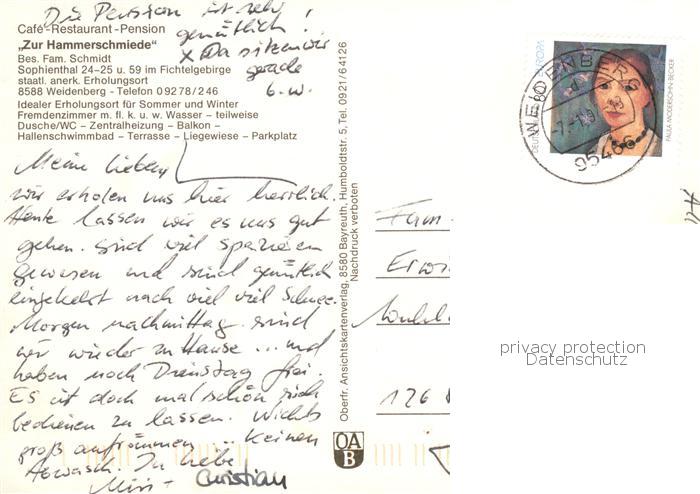 Die Pension ist sehr
gemütlich!
x Da sitzen wir
gerade
Café-Restaurant-Pension
„Zur Hammerschmiede"
Bes. Fam. Schmidt
Sophienthal 24–25 u. 59 im Fichtelgebirge
staatl. anerk. Erholungsort
8588 Weidenberg - Telefon 09278/246
Idealer Erholungsort für Sommer und Winter
Fremdenzimmer m. fl. k. u. w. Wasser – teilweise
Dusche/WC – Zentralheizung – Balkon –
Hallenschwimmbad – Terrasse – Liegewiese – Parkplatz
Meine lieben
wir erholen uns hier herrlich.
Heute lassen wir es uns gut
gehen. Sind viel spazieren
gewesen und sind gemütlich
eingekehrt nach viel viel Schnee.
Morgen nachmittag sind
wir wieder zu Hause ... und
haben noch Dienstag frei.
Es ist doch mal schön sich
bedienen zu lassen. Nichts
groß aufräumen ... keinen
Abwasch. In Liebe
Christian
Oberfr. Ansichtskartenverlag, 8580 Bayreuth, Humboldtstr. 5, Tel. 0921/64126
Nachdruck verboten
OA
B
EUROPA
PAULA MODERSOHN-BECKER
WEIDENBERG
95466
Fam.
Erwi
126
privacy protection
Datenschutz